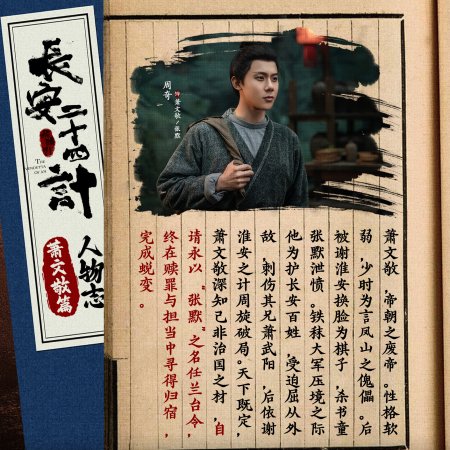 長安二十四計
THE
VENDETTA
OF AN
人物志
萧文敬篇
周奇
饰 萧文敬/张默
萧文敬,帝朝之废帝。性格软
弱,少时为言凤山之傀儡。后
被谢淮安换脸为棋子,杀书童
张默泄愤。铁秣大军压境之际
他为护长安百姓,受迫屈从外
敌,刺伤其兄萧武阳,后依谢
淮安之计周旋破局。天下既定,
萧文敬深知己非治国之材,自
请永以“张默”之名任兰台令,
终在赎罪与担当中寻得归宿,
完成蜕变。